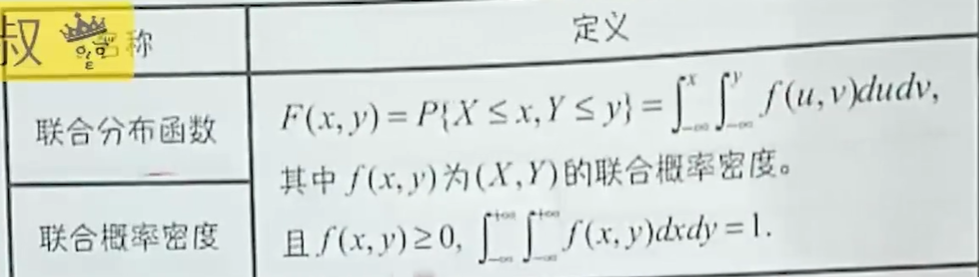 叔 名称 定义
联合分布函数 F(x, y) = P{X ≤ x, Y ≤ y} = ∫_{-∞}^{x} ∫_{-∞}^{y} f(u, v)dudv,
其中 f(x, y)为(X, Y)的联合概率密度。
联合概率密度 且 f(x, y) ≥ 0, ∫_{-∞}^{+∞} ∫_{-∞}^{+∞} f(x, y)dxdy = 1.